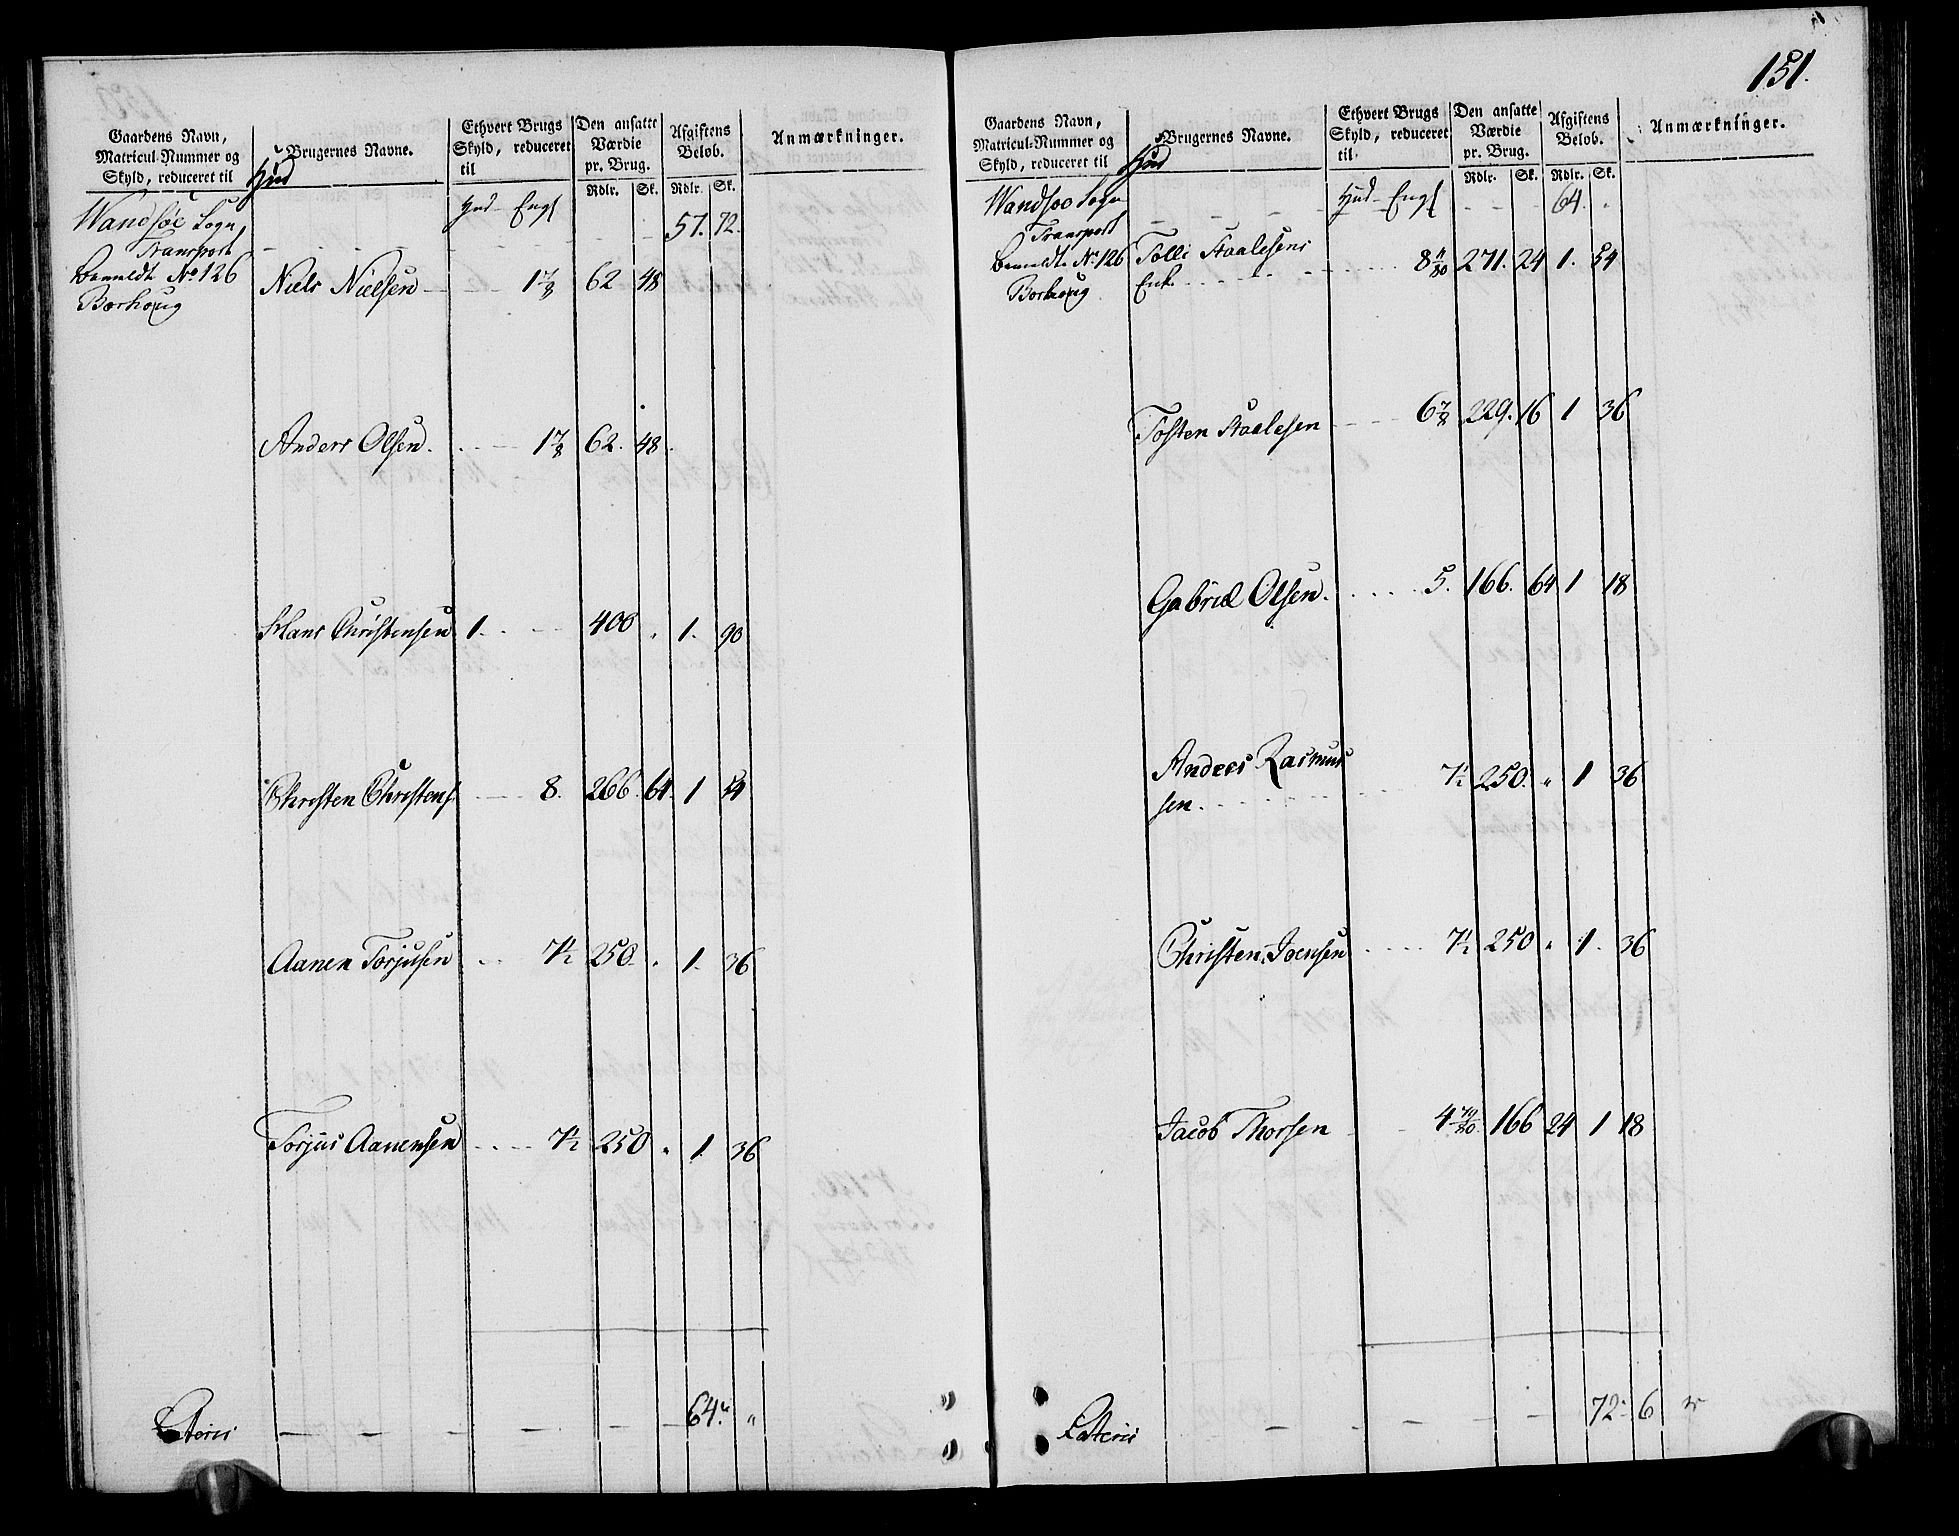 151.
Gaardens Navn,
Matricul-Nummer og
Skyld, reduceret til
Hud
Brugernes Navne.
Ethvert Brugs
Skyld, reduceret
til
Den ansatte
Værdie
pr. Brug.
Rdlr. Sk.
Afgiftens
Beløb.
Rdlr. Sk.
Anmærkninger.
Wandsøe Sogn,
Transport
Hud Eng
57. 72.
bemeldt No. 126
Borhoug
Niels Nielsen 1 7/8 62 48
Anders Olsen. 1 7/8 62. 48.
Hans Christensen 1. 400 " 1. 90
Christen Christens. 8. 266. 64. 1 54
Aanen Torjusen 7 1/2 250. " 1. 36
Torjus Aanensen 7 1/2 250 " 1. 36
Lateris 64. "
Gaardens Navn,
Matricul-Nummer og
Skyld, reduceret til
Hud
Brugernes Navne.
Ethvert Brugs
Skyld, reduceret
til
Den ansatte
Værdie
pr. Brug.
Rdlr. Sk.
Afgiftens
Beløb.
Rdlr. Sk.
Anmærkninger.
Wandsøe Sogn
Transport
Hud Eng
64.
bemeldt No. 126
Borhoug
Tolli Staalesens
Enk. 271. 24 1. 54
Tosten Staalesen 6 7/8 229. 16 1 36
Gabriel Olsen. 5. 166. 64 1 18
Anders Rasmus
sen. 7 1/2 250. " 1 36
Christen Joensen 7 1/2 250 " 1. 36
Jacob Thorsen 4 79/80 166 24 1 18
Lateris 72. 6